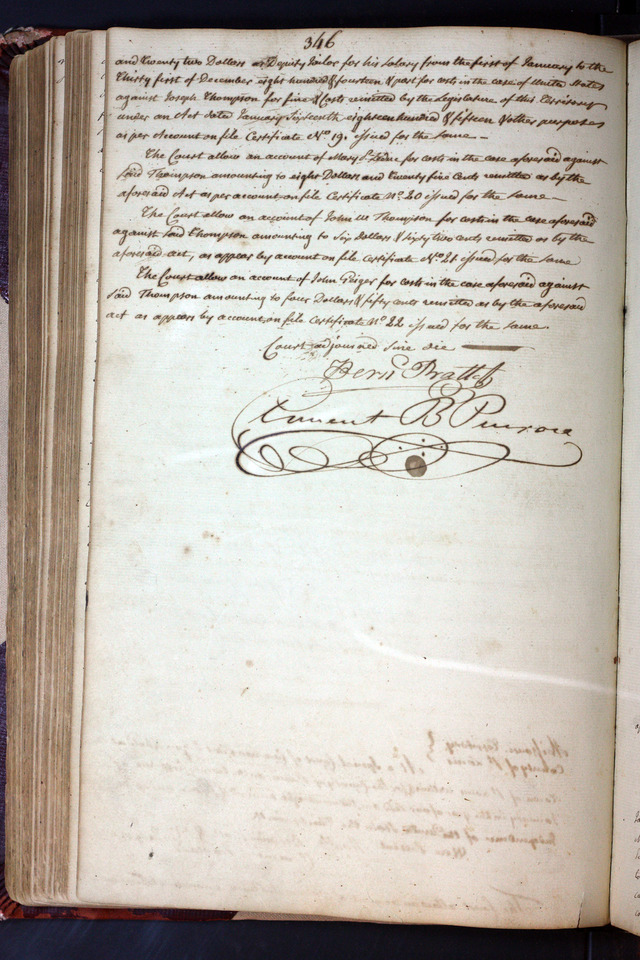 346
and Twenty two Dollars as Deputy Jailor for his Salary from the first of January to the
Thirty first of December eight hundred & fourteen & part for costs in the case of United States
against Joseph Thompson for fine & Costs remitted by the Legislature of this Territory
under an Act dated January Sixteenth eighteen hundred & fifteen & other purposes
as per Account on file Certificate No. 19. issued for the same —
The Court allow an account of Mary for costs in the case aforesaid against
Said Thompson amounting to eight Dollars and Twenty five Cents remitted as by the
aforesaid Act as per account on file Certificate No. 20 issued for the same —
The Court allow an account of John W Thompson for costs in the case aforesaid
against Said Thompson amounting to Six Dollars & Sixty two cents remitted as by the
aforesaid act, as appears by account on file Certificate No. 21 issued for the same
The Court allow an account of John Geiger for costs in the case aforesaid against
Said Thompson amounting to four Dollars & fifty cents remitted as by the aforesaid
act as appears by account on file Certificate No. 22 issued for the same.
Court adjourned Sine die —
Bern Pratte
Clement B Penrose